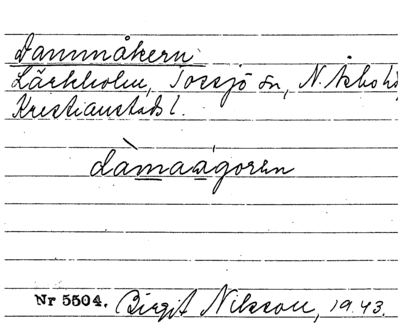 Dammåkern
Lärkholm, Tossjö sn, N. Åsbo hd,
Kristianstads l.
dàmaágoren
Nr 5504. Birgit Nilsson, 1943.